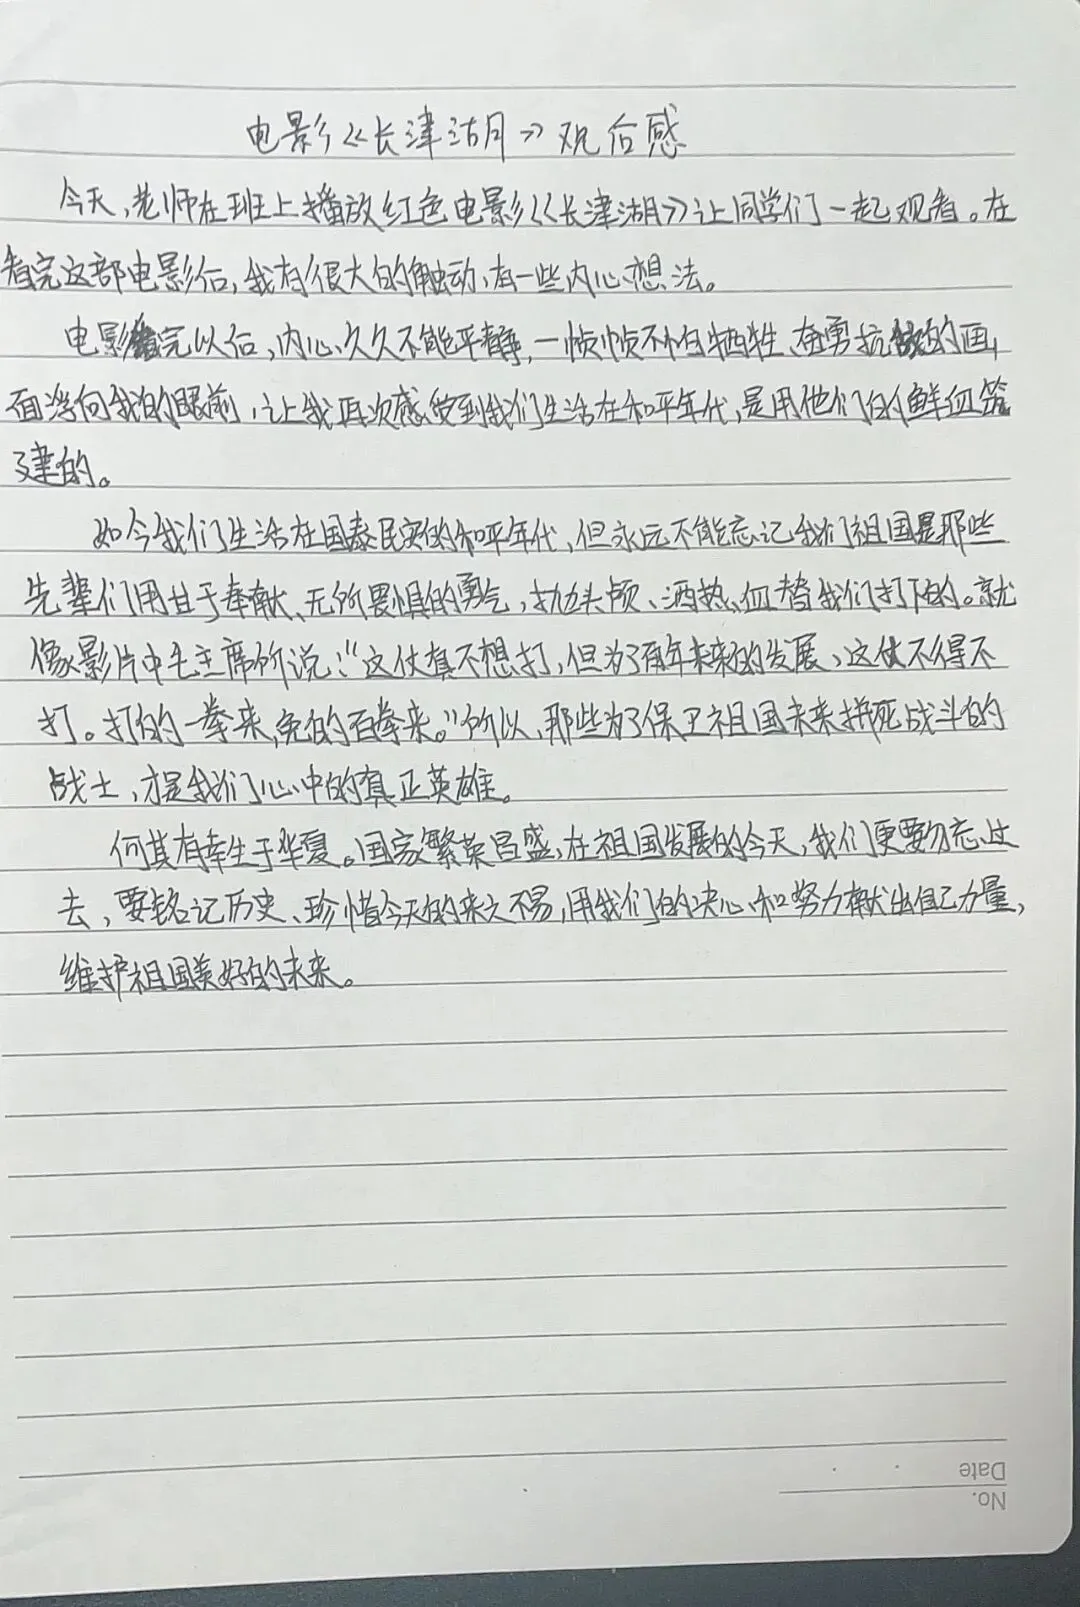 电影《长津湖》观后感
今天,老师在班上播放红色电影《长津湖》让同学们一起观看。在
看完这部电影后,我有很大的触动,有一些内心想法。
电影看完以后,内心久久不能平静,一帧帧不怕牺牲、奋勇抗敌的画
面浮向我的眼前,让我再次感受到我们生活在和平年代,是用他们的鲜血筑
建的。
如今我们生活在国泰民安的和平年代,但永远不能忘记我们祖国是那些
先辈们用甘于奉献、无所畏惧的勇气,抛头颅、洒热血替我们打下的。就
像影片中毛主席所说:“这仗真不想打,但为了百年未来的发展、这仗不得不
打。打的一拳来,免的百拳来。”所以,那些为了保卫祖国未来拼死战斗的
战士,才是我们心中的真正英雄。
何其有幸生于华夏。国家繁荣昌盛,在祖国发展的今天,我们更要勿忘过
去,要铭记历史、珍惜今天的来之不易,用我们的决心和努力献出自己力量,
维护祖国美好的未来。
No.
Date